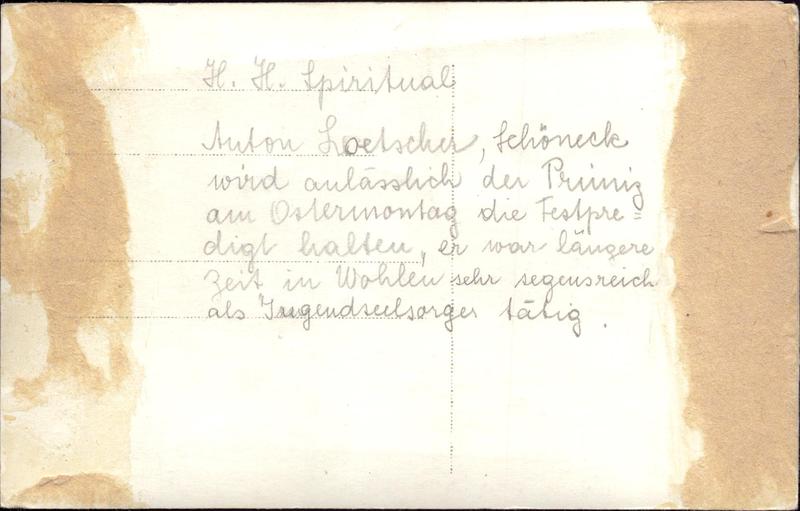 H. H. Spiritual
Anton Loetscher, Schöneck
wird anlässlich der Primiz
am Ostermontag die Festpre=
digt halten, er war längere
Zeit in Wohlen sehr segensreich
als Jugendseelsorger tätig.